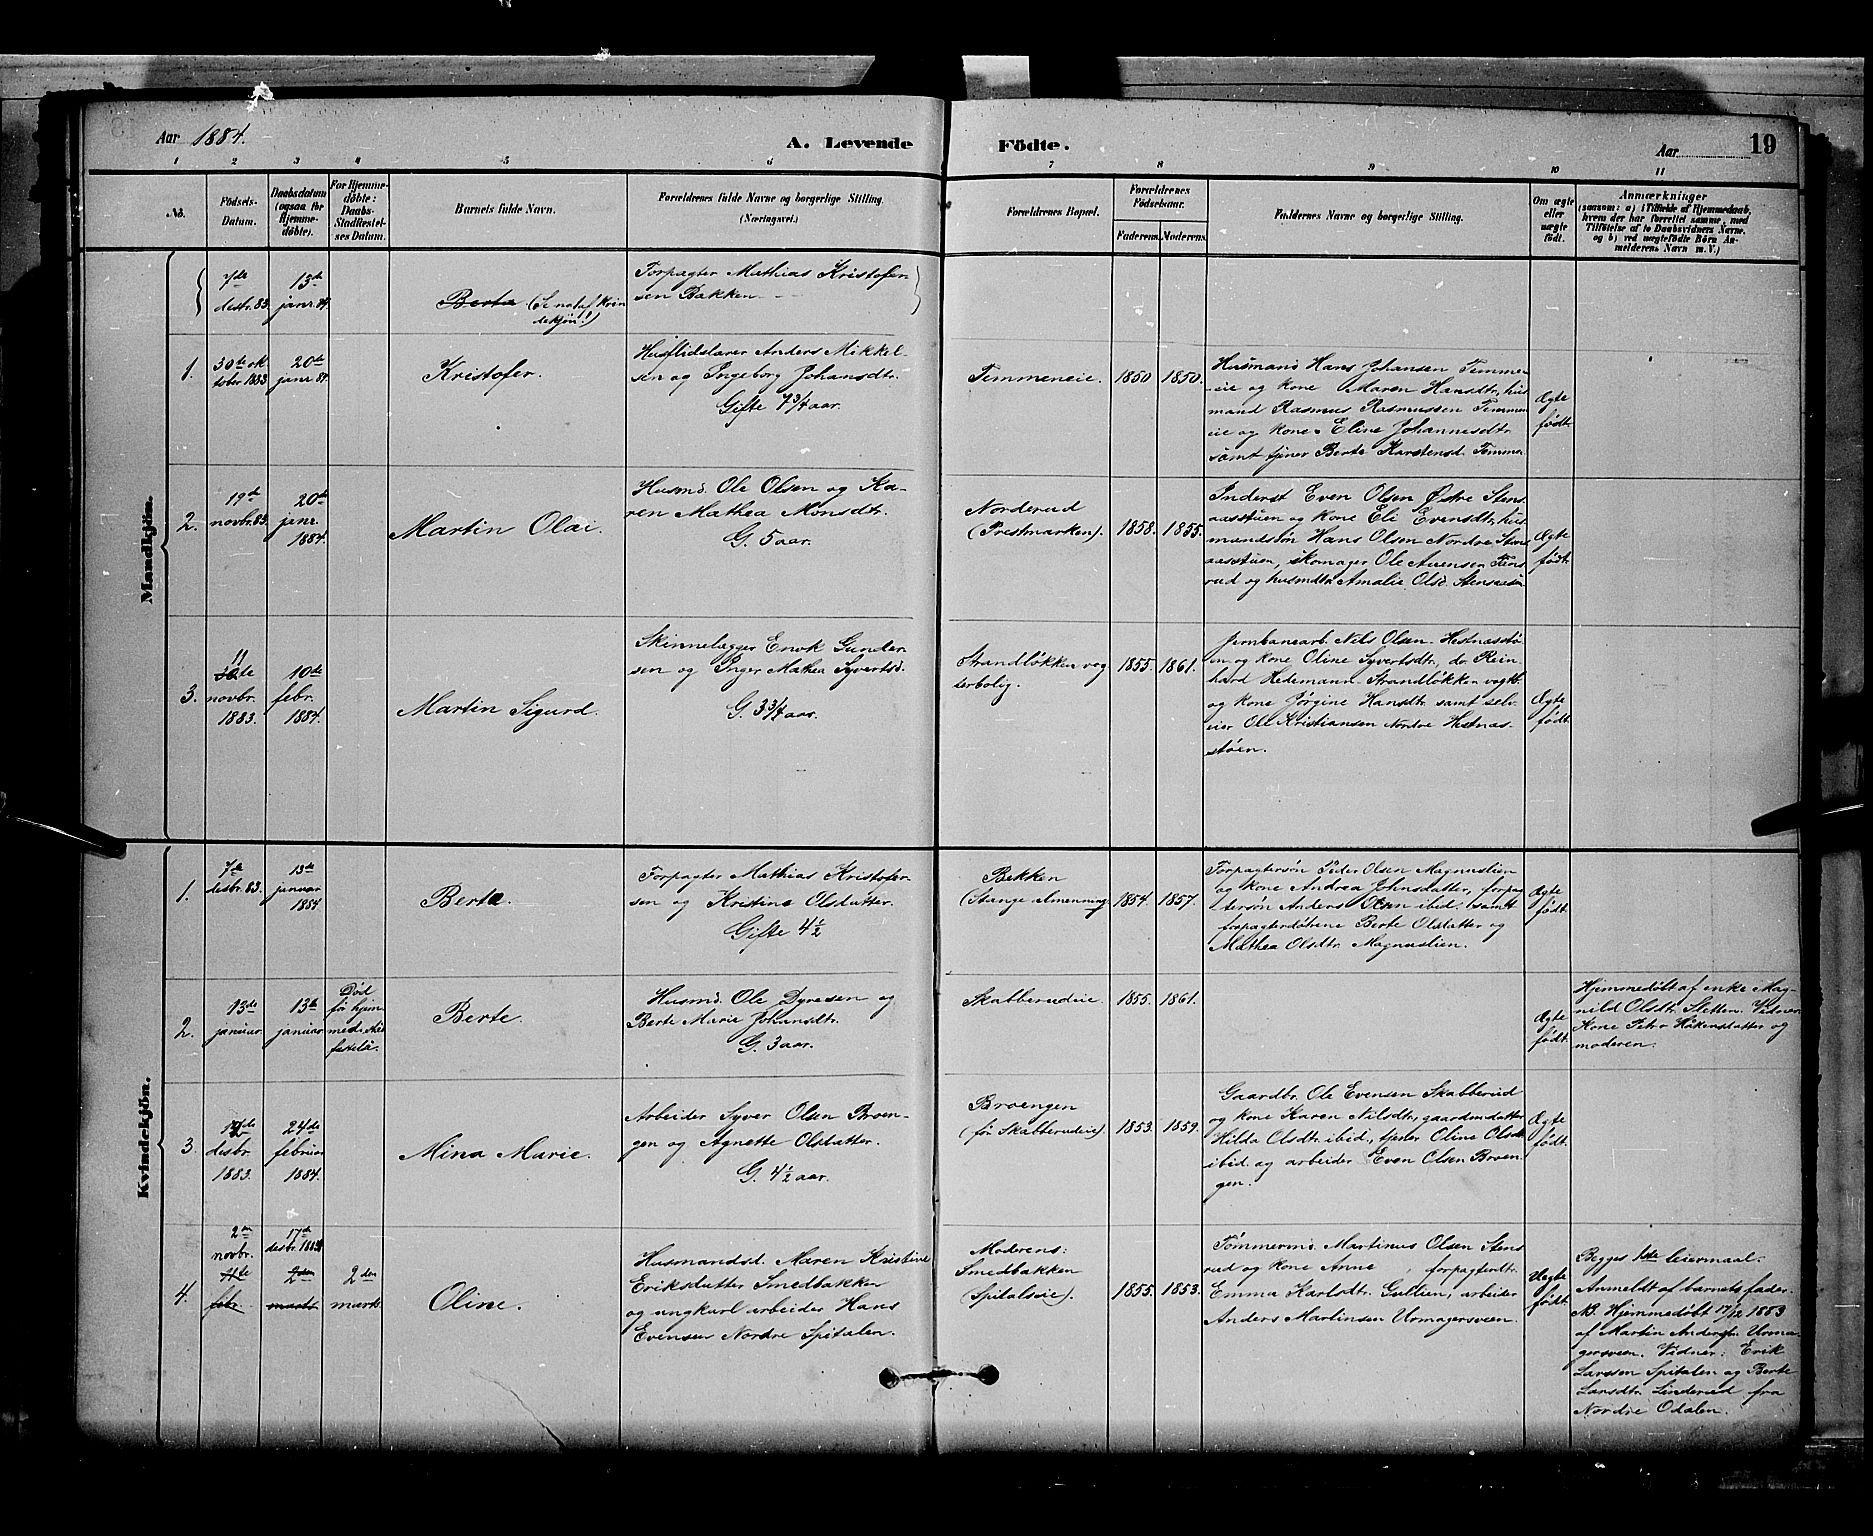 Aar 1884.
A. Levende
Födte.
Aar
19
1 2 3 4 5 6 7 8 9 10 11
No.
Födsels-
Datum.
Daabsdatum
(ogsaa for
Hjemme-
döbte).
For Hjemme-
döbte:
Daabs-
Stadfæstel-
ses Datum.
Barnets fulde Navn.
Forældrenes fulde Navne og borgerlige Stilling.
(Næringsvei.)
Forældrenes Bopæl.
Forældrenes
Födselsaar.
Faderens. Moderens.
Faddernes Navne og borgerlige Stilling.
Om ægte
eller
uægte
födt.
Anmærkninger
(saasom: a) i Tilfælde af Hjemmedaab,
hvem der har forrettet samme, med
Tilföielse af to Daabsvidners Navne,
og b) ved uægtefödte Börn An-
melderens Navn m. V.)
Mandkjön.
7de
desbr. 83.
13de
janr. 84.
Berta (Se not af kvin
dekjön!)
Forpagter Mathias Kristofer
sen Bakken
1.
30te ok
tober 1883
20de
janr 84.
Kristofer.
Husflidslærer Anders Mikkel-
sen og Ingeborg Johansdtr.
Gifte 7 3/4 aar.
Temmeneie.
1850 1850.
Husmand Hans Johansen Temmen
eie og kone Maren Hansdtr, hus
mand Rasmus Rasmussen Temmen
eie og kone Eline Johannesdtr.
samt tjener Berte Karstensd. Temmen
Ægte
födt.
2.
19de
novbr. 83.
20de
janr.
1884.
Martin Olai.
Husmd. Ole Olsen og Ka-
ren Mathea Monsdtr.
G. 5 aar.
Norderud
(Prestmarken).
1858. 1855.
Inderst Even Olsen Østre Stens
aasstuen og kone Eli Evensdtr, hus
mandssön Hans Olsen Nordre Stens
aasstuen, skomager Ole Aurensen Fins
rud og husmdtr. Amalie Olsd. Stensaasen
Ægte
födt.
3.
11
30te
novbr.
1883.
10de
febr.
1884.
Martin Sigurd.
Skinnelægger Enok Gunder
sen og Inger Mathea Syvertsd.
G. 3 3/4 aar.
Strandlökken vog
terbolig.
1855. 1861.
Jernbanearb. Nils Olsen Hestnæsstö
en og kone Oline Syvertsdtr, do. Rein
hard Hedemann Strandlökken vogtb.
og kone Jörgine Hansdtr. samt selv
eier Ole Kristiansen Nordre Hestnæs-
stöen.
Ægte
födt.
Kvindekjön.
1.
7de
desbr. 83.
13de
januar
1884.
Berte.
Forpagter Mathias Kristofer
sen og Kristine Olsdatter.
Gifte 4 1/2
Bekken
(Stange almenning
1854. 1857.
Forpagtersön Peder Olsen Magnuslien
og kone Andrea Johnsdatter, forpag
tersön Anders Olsen ibid. samt
forpagterdötrene Berte Olsdatter og
Mathea Olsdtr. Magnuslien.
Ægte
födt.
2.
13de
januar.
13de
januar
Död
för hjem
med. stad
fæstelse.
Berte.
Husmd. Ole Dyresen og
Berte Marie Johansdtr.
G. 3 aar.
Skabberudeie.
1855. 1861.
Ægte
födt.
Hjemmedöbt af enke Mag-
nild Olsdtr. Sletten. Vidner
Kone Petra Håkenstatter og
moderen.
3.
12de
desbr.
1883
24de
februar
1884.
Mina Marie.
Arbeider Syver Olsen Broen-
gen og Agnette Olsdatter.
G. 4 1/2 aar.
Broengen
(för Skabberudeie)
1853. 1859.
Gaardbr. Ole Evensen Skabberud
og kone Karen Nilsdtr, gaardmdatter
Hilda Olsdtr. ibid., tjener Oline Olsdtr
ibid. og arbeider Even Olsen Broen-
gen.
Ægte
födt.
4.
2den
novbr.
4te
febr.
17de
desbr. 1883
2den
marts
2den
marts.
Oline.
Husmandsd. Maren Kristine
Eriksdatter Smedbakken
og ungkarl arbeider Hans
Evensen Nordre Spitalen.
Moderens:
Smedbakken
(Spitalseie).
1855. 1853.
Tömmermd. Martinus Olsen Stens
rud og kone Anne , forpagterdtr.
Emma Karlsdtr. Gullien, arbeider
Anders Martinsen Urmagersveen.
Uægte
födt.
Begges 1ste leiermaal.
Anmeldt af barnets fader.
NB. Hjemmedöbt 17/12 1883
af Martin Anderss. Urma-
gersveen. Vidner: Erik
Larssen Spitalen og Berte
Larsdtr. Linderud fra
Nordre Odalen.